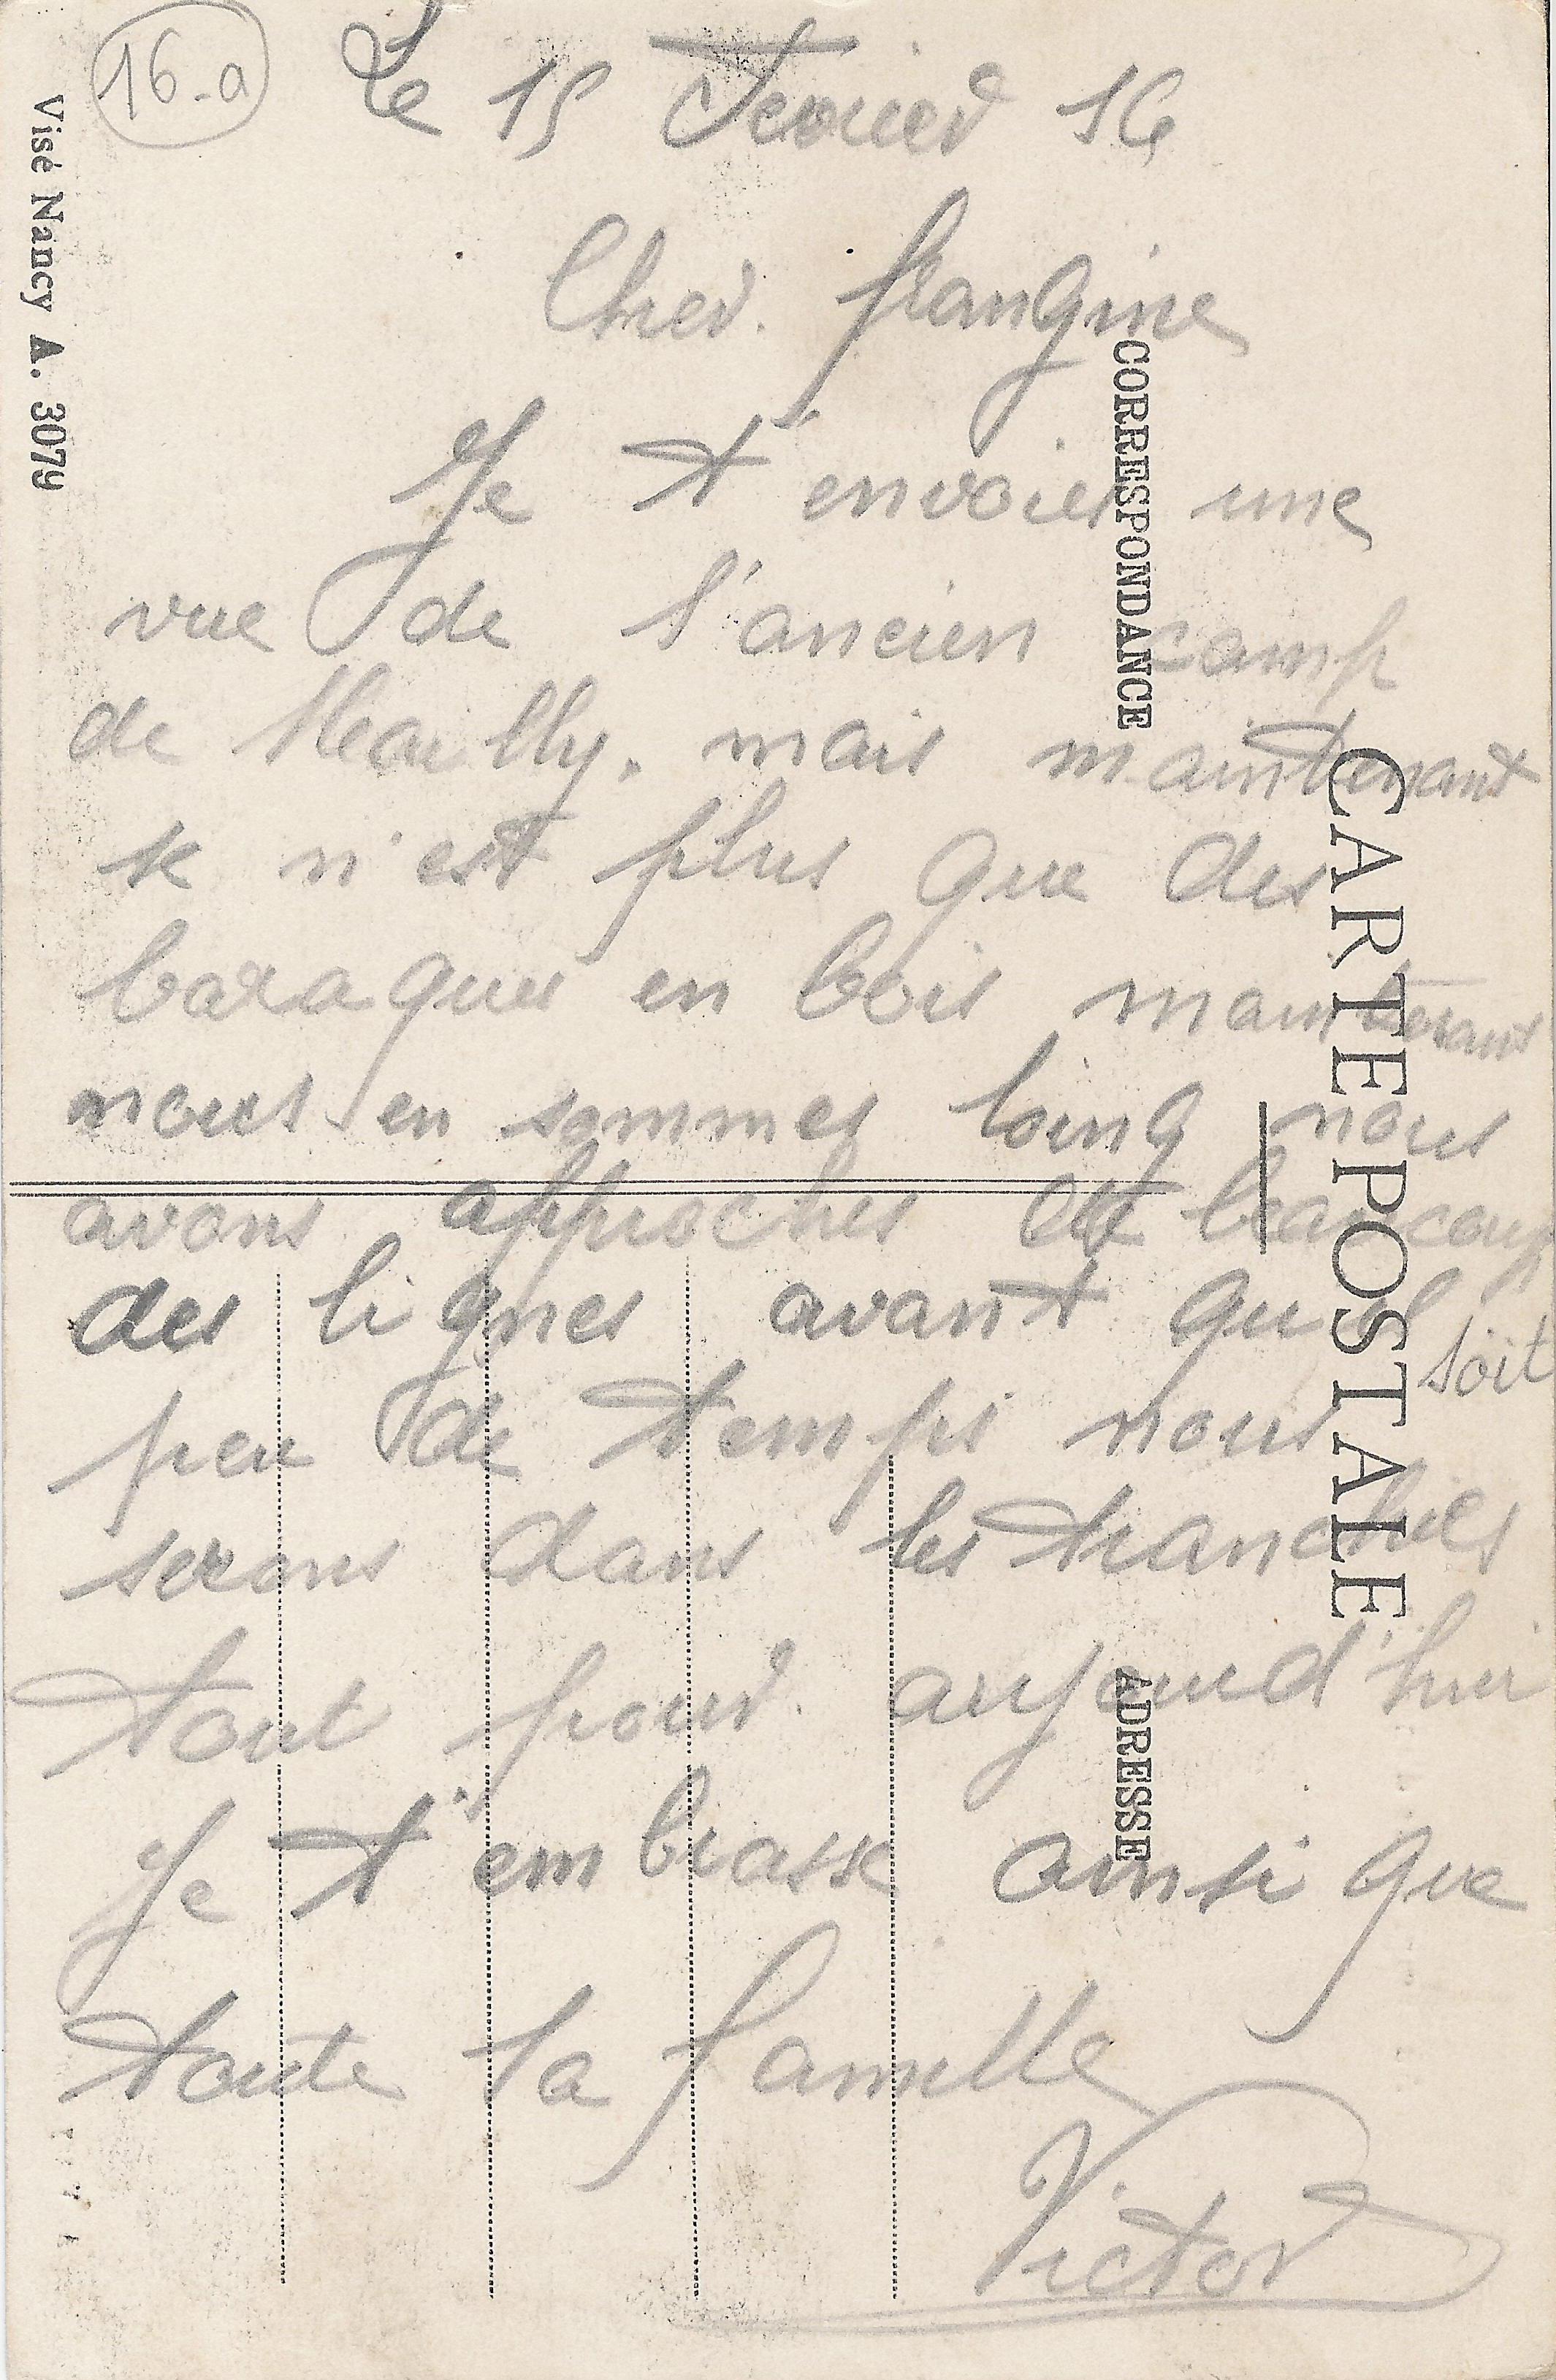 16-a
Le 15 Fevrier 16
Cher. frangine
Je t'envoies une
vue de l'ancien camp
de Mailly. mais maintenant
se n'est plus que des
baraques en bois maintenant
nous en sommes loing nous
avons approches de beaucoup
des lignes avant qu'il soit
peu de temps nous
serons dans les tranchées
tout pour. aujourd'hui
Je t'embrasse ainsi que
toute la famille
Victor
Visé Nancy A. 3079
CARTE POSTALE
CORRESPONDANCE
ADRESSE